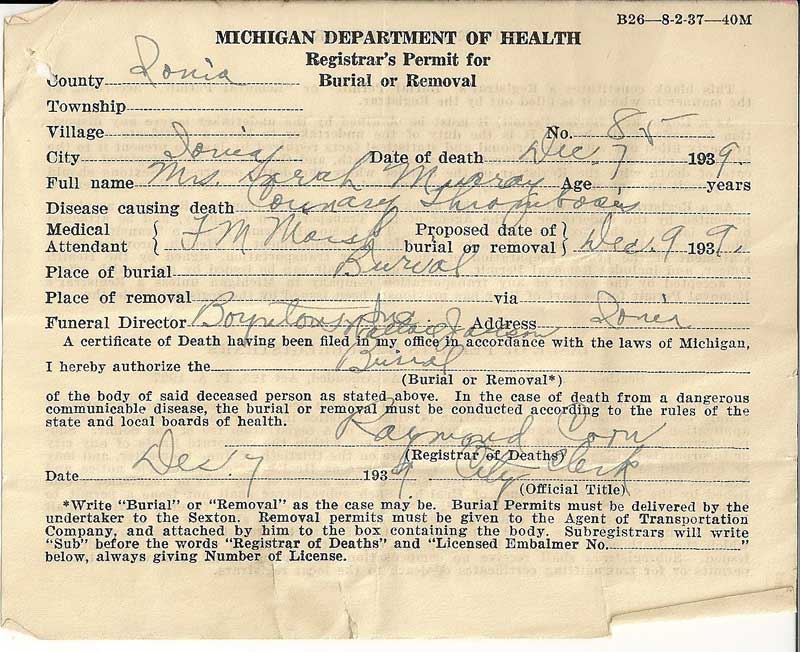 B26—8-2-37—40M
MICHIGAN DEPARTMENT OF HEALTH
Registrar's Permit for
County Ionia Burial or Removal
Township
Village No. 85
City Ionia Date of death Dec. 7 1939.
Full name Mrs. Sarah Murray Age years
Disease causing death Coronary Thrombosis
Medical Attendant { F M Marsh Proposed date of burial or removal } Dec. 9 1939.
Place of burial Burial
Place of removal via
Funeral Director Boyntons Inc Address Ionia
A certificate of Death having been filed in my office in accordance with the laws of Michigan,
I hereby authorize the Burial
(Burial or Removal*)
of the body of said deceased person as stated above. In the case of death from a dangerous
communicable disease, the burial or removal must be conducted according to the rules of the
state and local boards of health.
Raymond Corn
(Registrar of Deaths)
Date Dec 7 1939 City Clerk
(Official Title)
*Write "Burial" or "Removal" as the case may be. Burial Permits must be delivered by the
undertaker to the Sexton. Removal permits must be given to the Agent of Transportation
Company, and attached by him to the box containing the body. Subregistrars will write
"Sub" before the words "Registrar of Deaths" and "Licensed Embalmer No. "
below, always giving Number of License.